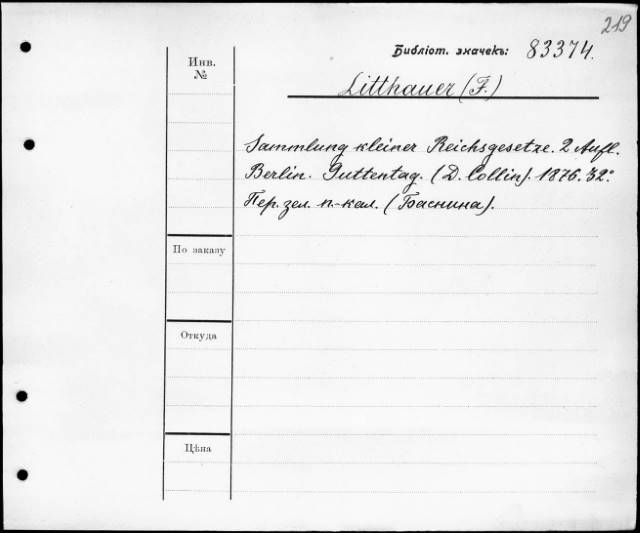 219
Библіот. значекъ: 83374.
Инв.
№
Litthauer (F.)
Sammlung kleiner Reichsgesetze. 2 Aufl.
Berlin. Guttentag. (D. Collin). 1876. 32°.
Пер. зел. п.-кал. (Баснина).
По заказу
Откуда
Цѣна